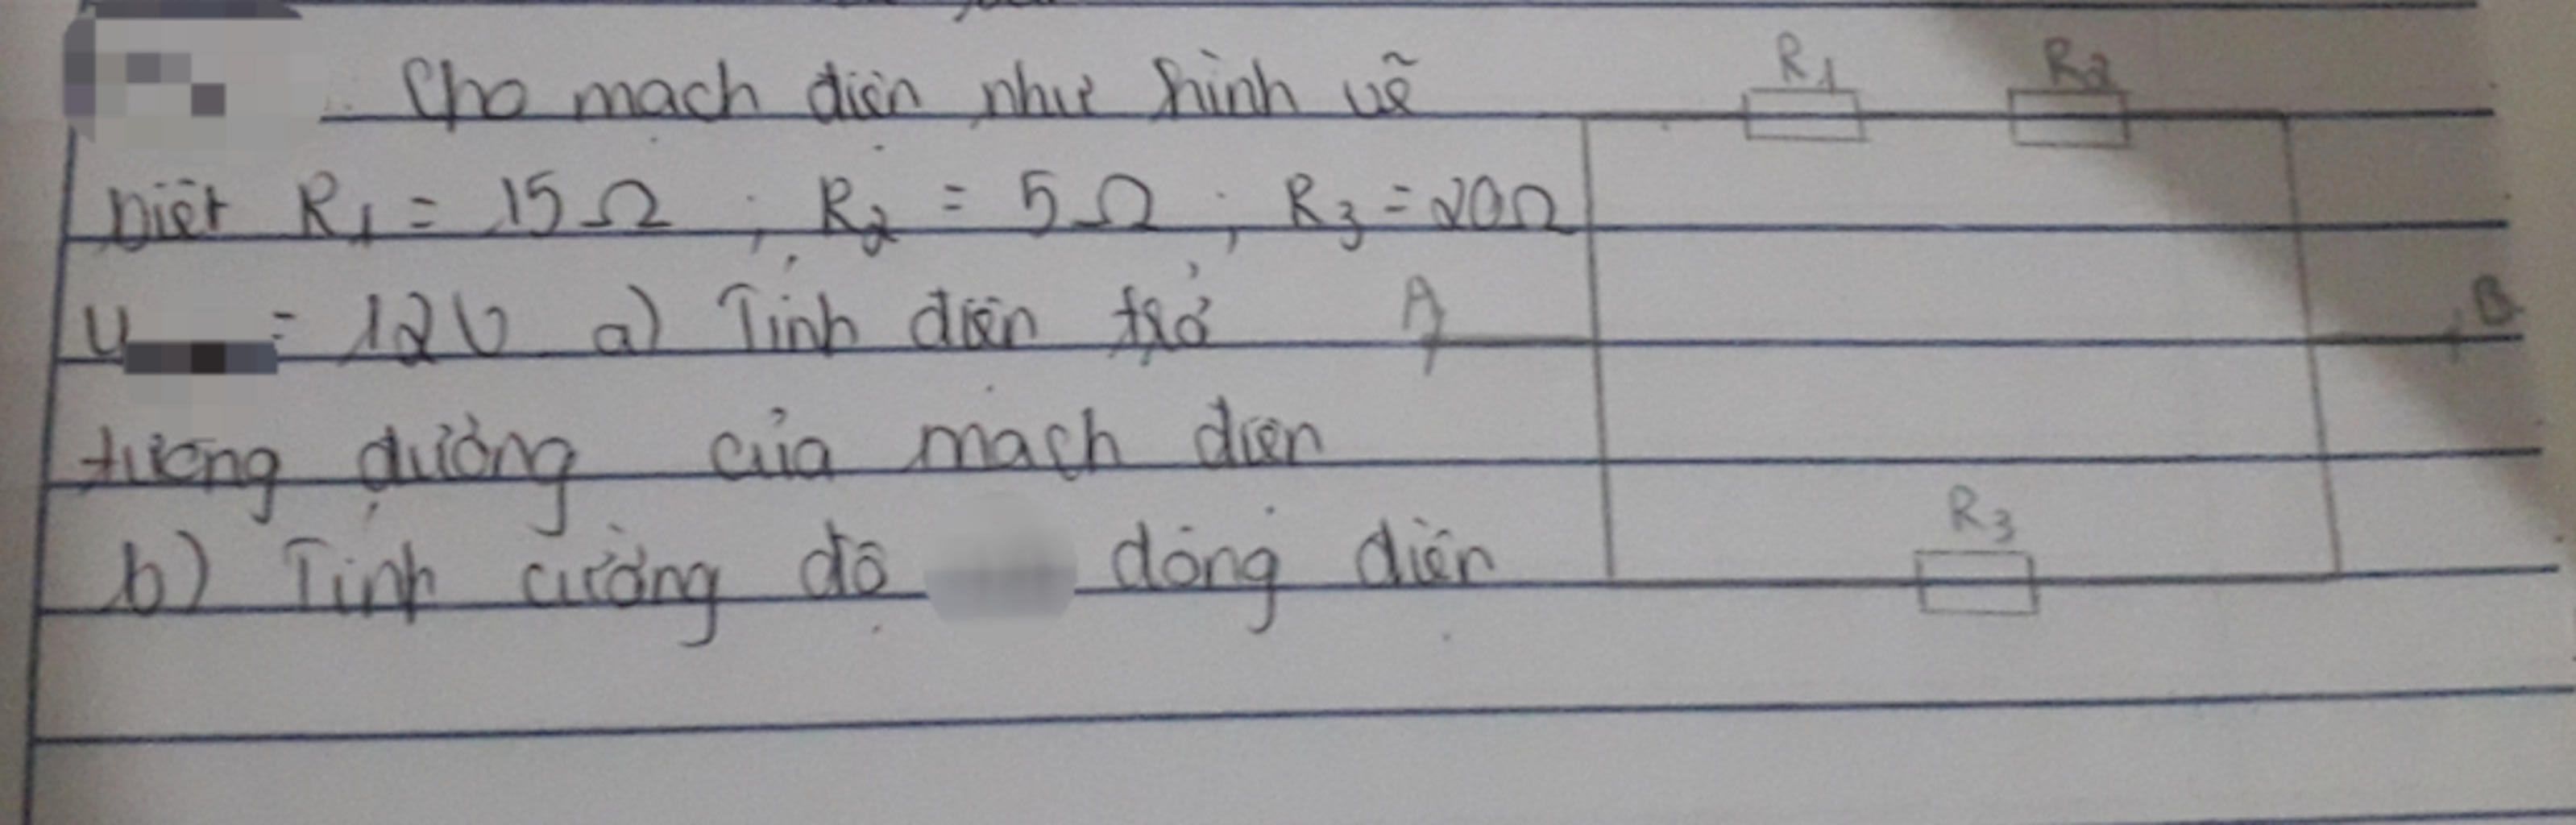 Cho mạch điện như hình vẽ
R1
R2
biết R1 = 15Ω ; R2 = 5Ω ; R3 = 20Ω
U = 12V a) Tính điện trở
A
B
tương đương của mạch điện
R3
b) Tính cường độ dòng điện